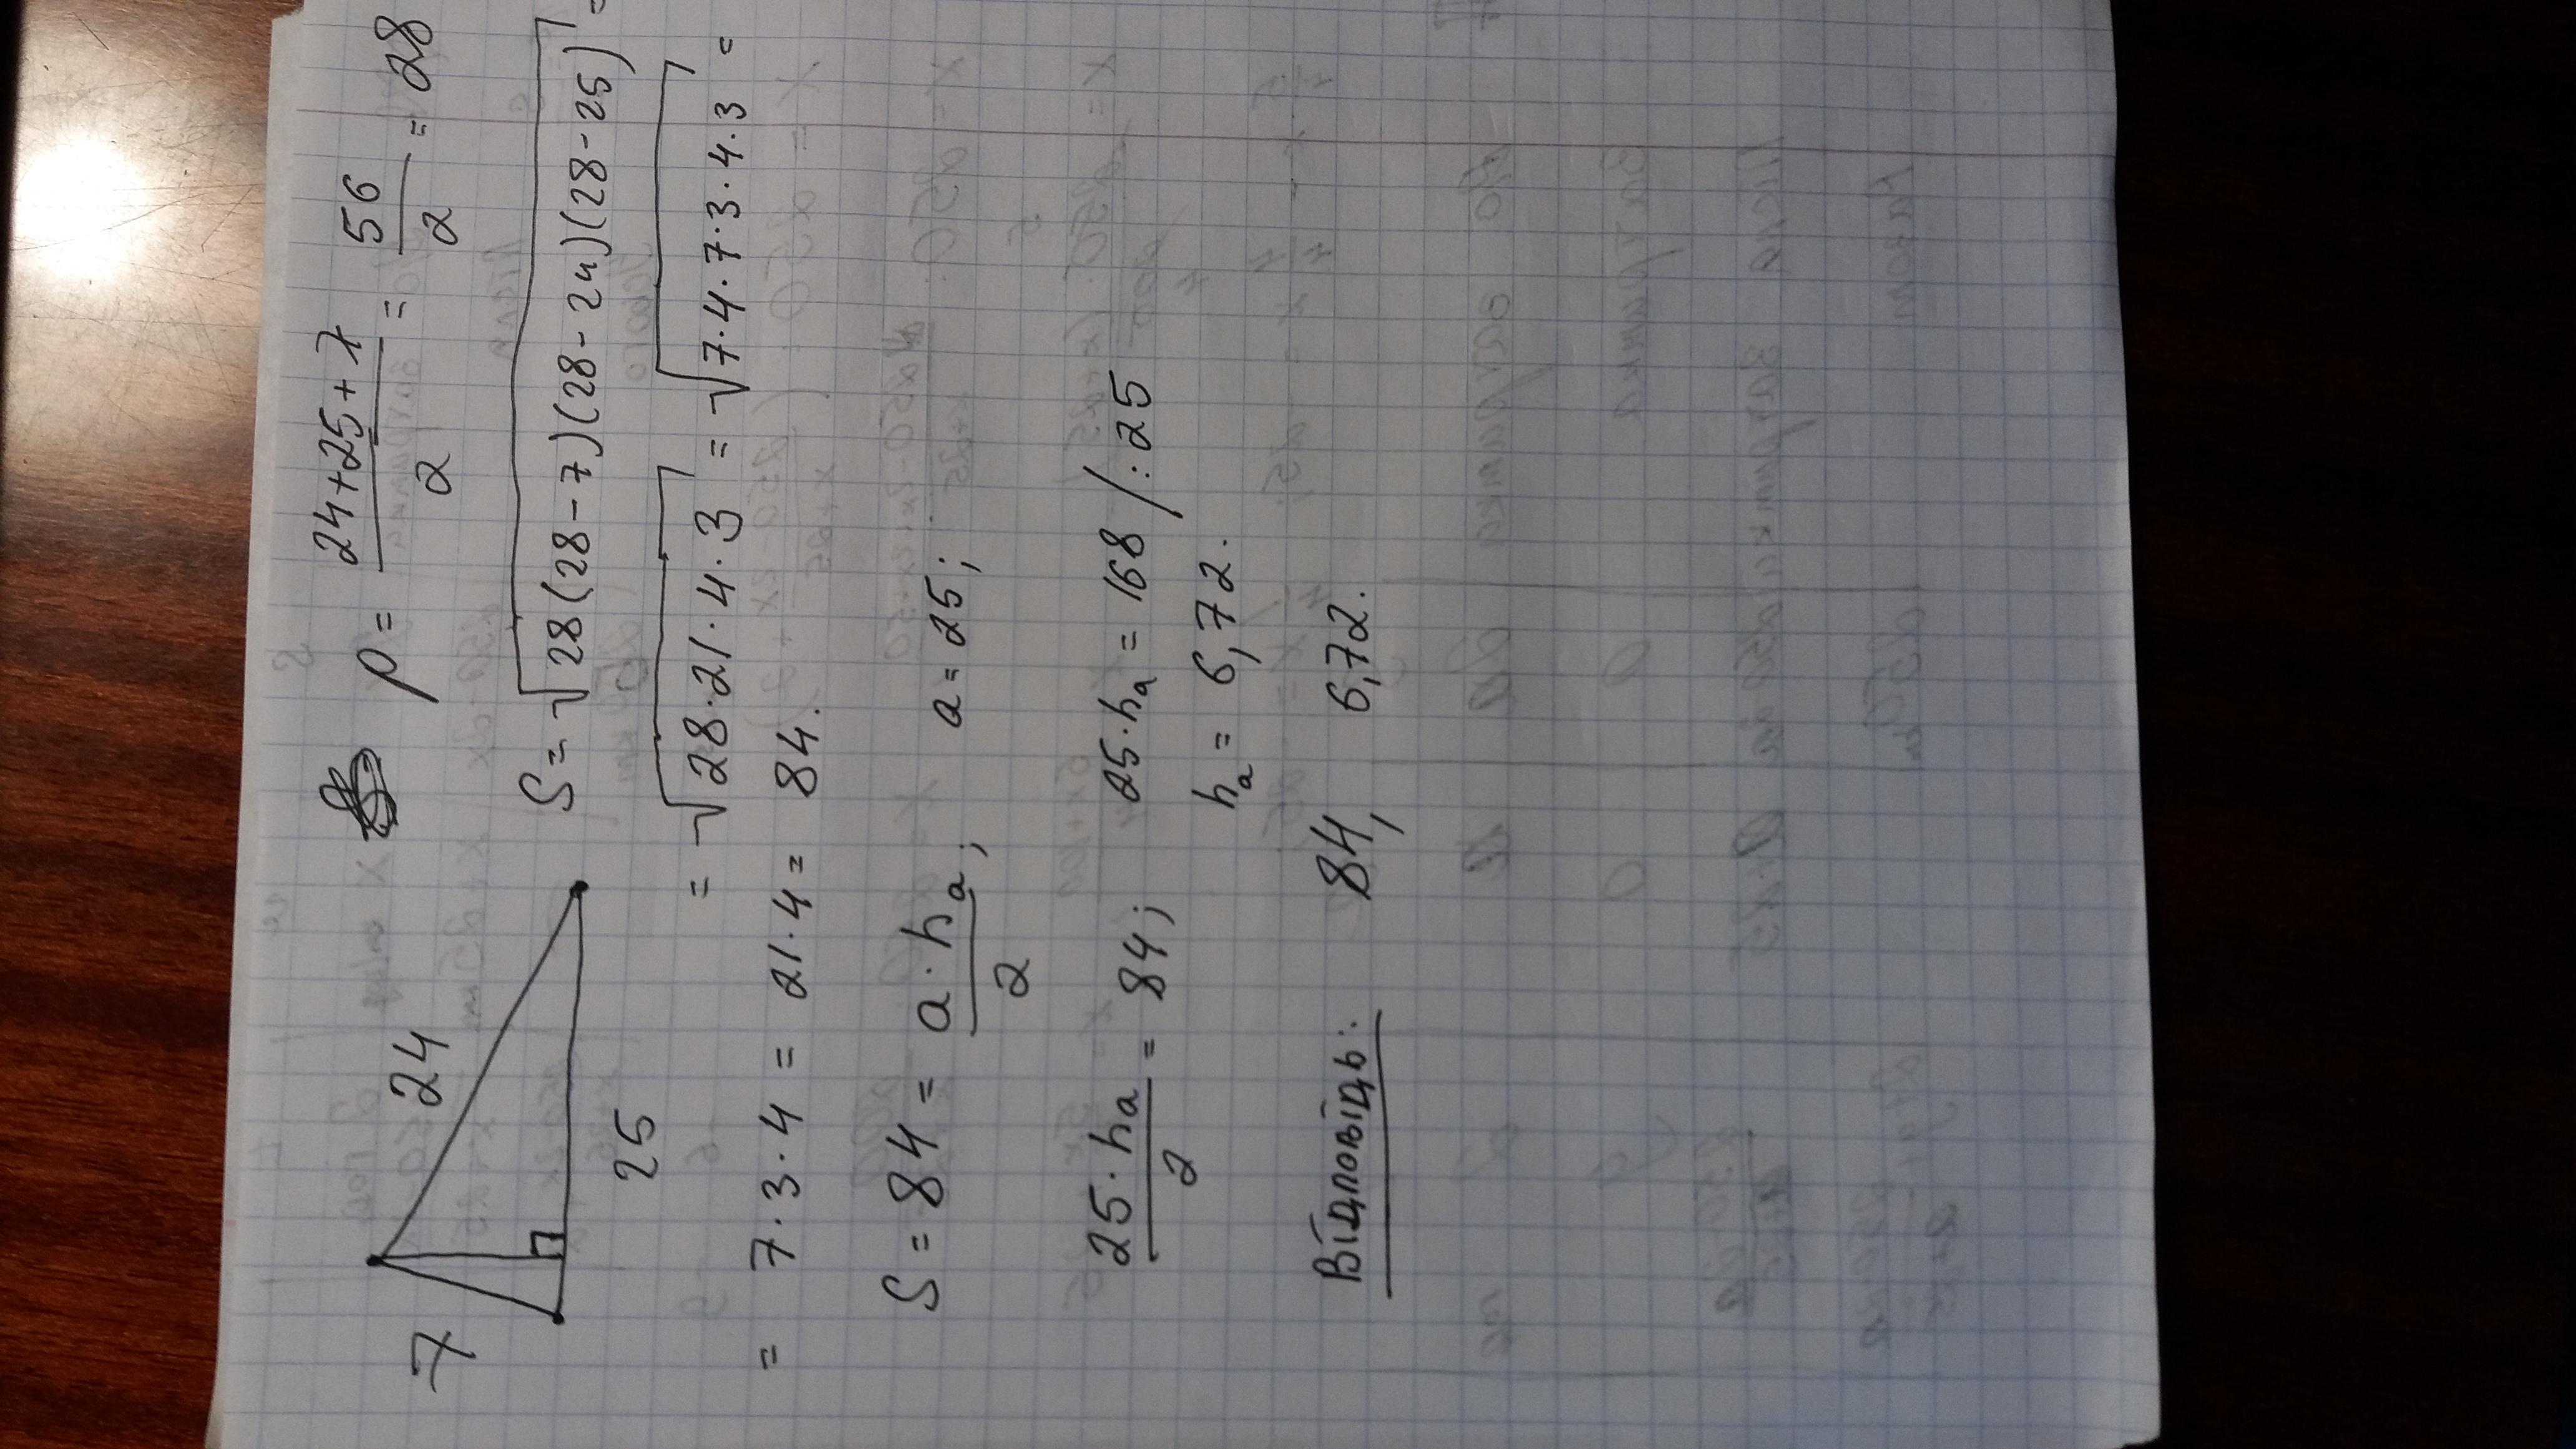 7
24
25
p = (24+25+7)/2 = 56/2 = 28
S = √(28(28-7)(28-24)(28-25)) =
= √(28·21·4·3) = √(7·4·7·3·4·3) =
= 7·3·4 = 21·4 = 84.
S = 84 = (a·hₐ)/2; a = 25;
(25·hₐ)/2 = 84; 25·hₐ = 168 /:25
hₐ = 6,72.
Відповідь: 84, 6,72.